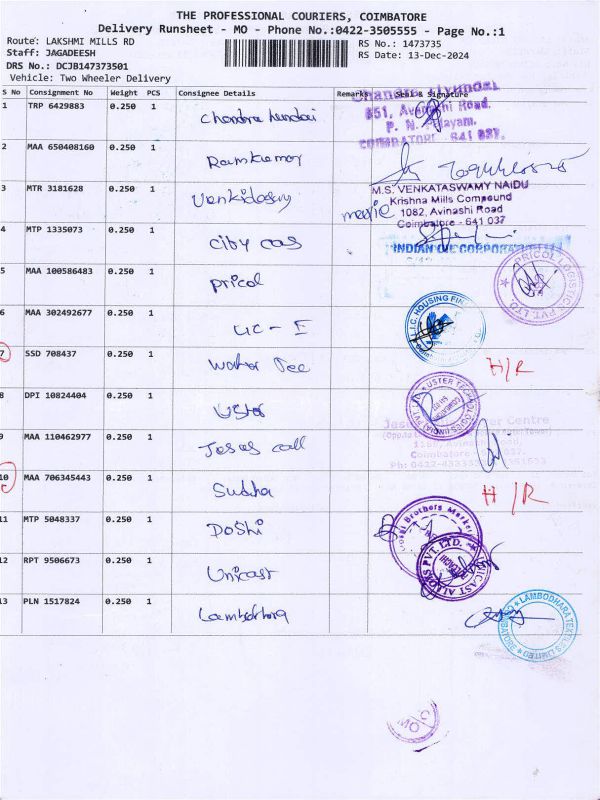 THE PROFESSIONAL COURIERS, COIMBATORE
Delivery Runsheet - MO - Phone No.:0422-3505555 - Page No.:1
Route: LAKSHMI MILLS RD
Staff: JAGADEESH
DRS No.: DCJB147373501
Vehicle: Two Wheeler Delivery
RS No.: 1473735
RS Date: 13-Dec-2024
S No Consignment No Weight PCS Consignee Details Remarks Seal & Signature
1 TRP 6429883 0.250 1 Chandra hundai
851, Avinashi Road.
COIMBATORE - 641 037.
2 MAA 650408160 0.250 1 Ramkumar
3 MTR 3181628 0.250 1 Venkidasamy
M.S. VENKATASWAMY NAIDU
Krishna Mills Compound
1082, Avinashi Road
Coimbatore - 641 037
4 MTP 1335073 0.250 1 City Gas
INDIAN OIL CORPORATION
5 MAA 100586483 0.250 1 pricol
PRICOL LOGISTICS PVT. LTD.
6 MAA 302492677 0.250 1 LIC - I
L.I.C. HOUSING FIN
7 SSD 708437 0.250 1 Water Tec H/R
8 DPI 10824404 0.250 1 Uster
USTER TECHNOLOGIES (INDIA) PVT. LTD.
9 MAA 110462977 0.250 1 Jesus call
Coimbatore
10 MAA 706345443 0.250 1 Sudha H/R
11 MTP 5048337 0.250 1 DoShi
Doshi Brothers Market
12 RPT 9506673 0.250 1 Unicast
UNICAST ALLOYS PVT. LTD.
13 PLN 1517824 0.250 1 Lambodhara
LAMBODHARA TEXTILES LIMITED